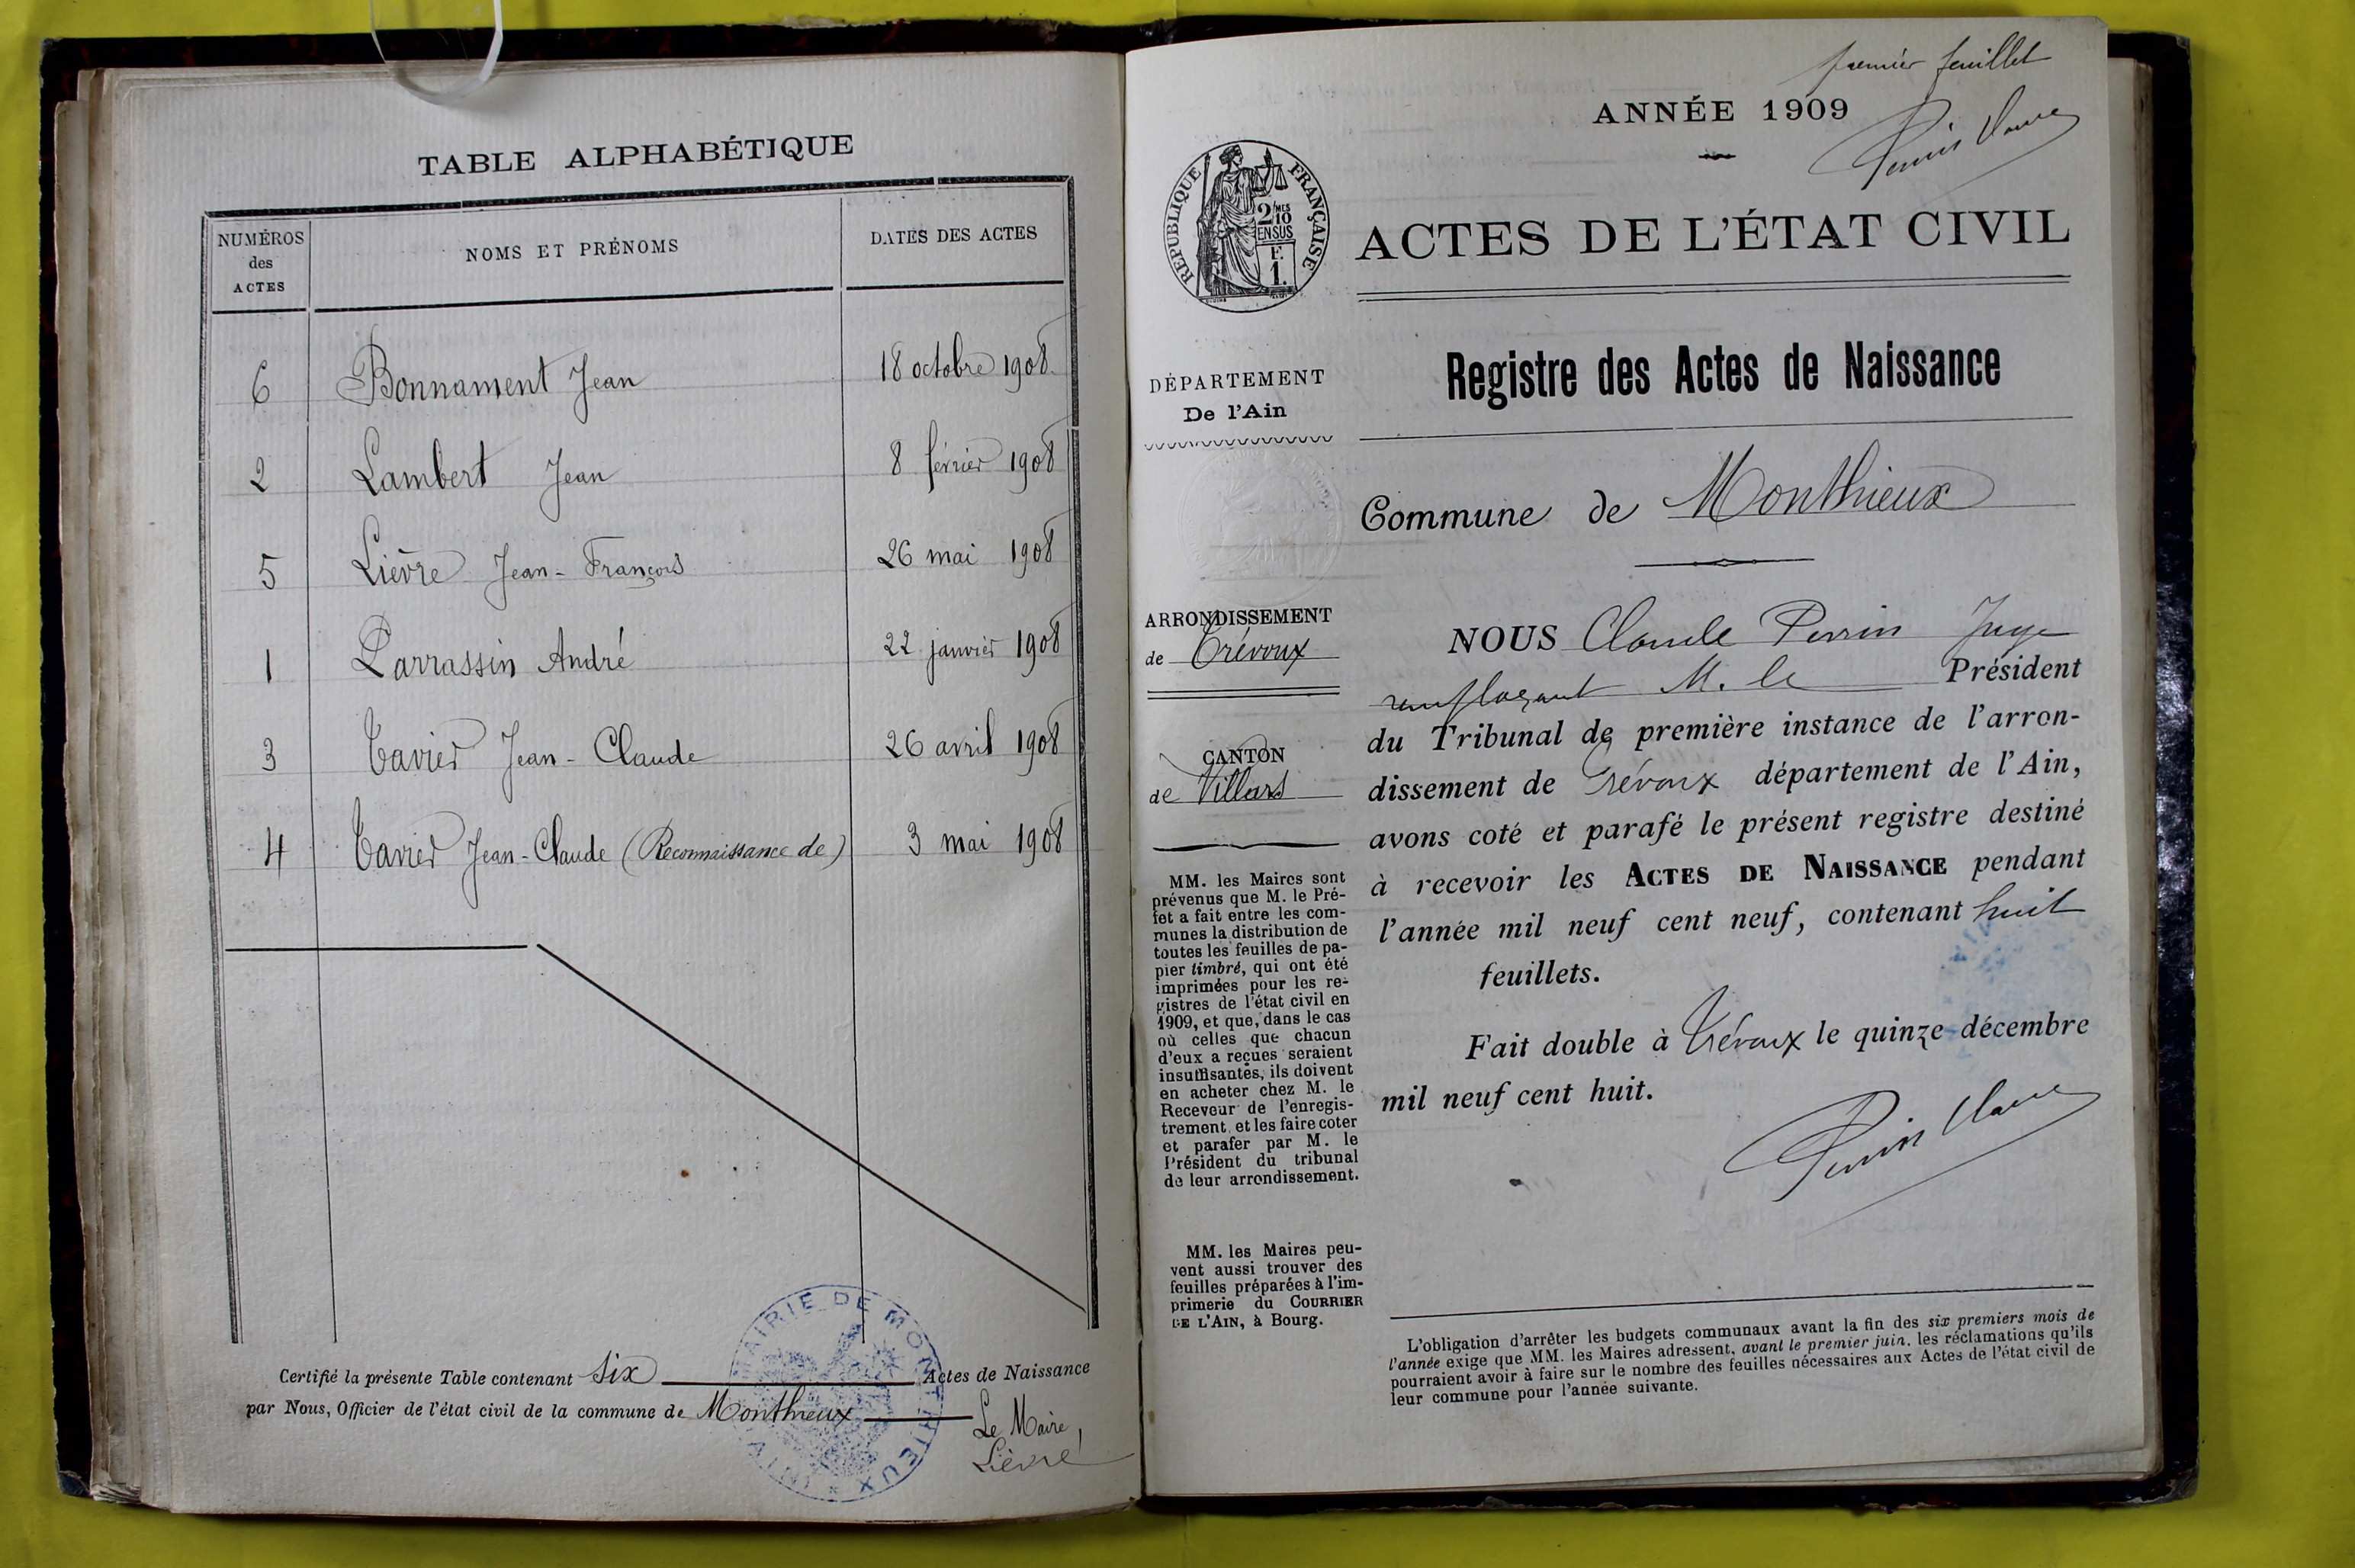 TABLE ALPHABÉTIQUE
NUMÉROS
des
ACTES
NOMS ET PRÉNOMS
DATES DES ACTES
6 Bonnament Jean 18 octobre 1908
2 Lambert Jean 8 février 1908
5 Lièvre Jean-François 26 mai 1908
1 Parrassin André 22 janvier 1908
3 Tavier Jean-Claude 26 avril 1908
4 Tavier Jean-Claude (Reconnaissance de) 3 mai 1908
Certifié la présente Table contenant six Actes de Naissance
par Nous, Officier de l'état civil de la commune de Monthieux
Le Maire,
Lièvre
MAIRIE DE MONTHIEUX * (AIN) *
premier feuillet
ANNÉE 1909
Perrin Claude
RÉPUBLIQUE FRANÇAISE
2/10 MES
EN SUS
F.
1.
ACTES DE L'ÉTAT CIVIL
Registre des Actes de Naissance
DÉPARTEMENT
De l'Ain
Commune de Monthieux
ARRONDISSEMENT
de Trévoux
CANTON
de Villars
MM. les Maires sont
prévenus que M. le Pré-
fet a fait entre les com-
munes la distribution de
toutes les feuilles de pa-
pier timbré, qui ont été
imprimées pour les re-
gistres de l'état civil en
1909, et que, dans le cas
où celles que chacun
d'eux a reçues seraient
insuffisantes, ils doivent
en acheter chez M. le
Receveur de l'enregis-
trement, et les faire coter
et parafer par M. le
Président du tribunal
de leur arrondissement.
MM. les Maires peu-
vent aussi trouver des
feuilles préparées à l'im-
primerie du COURRIER
DE L'AIN, à Bourg.
NOUS Claude Perrin Juge
remplaçant M. le Président
du Tribunal de première instance de l'arron-
dissement de Trévoux département de l'Ain,
avons coté et parafé le présent registre destiné
à recevoir les ACTES DE NAISSANCE pendant
l'année mil neuf cent neuf, contenant huit
feuillets.
Fait double à Trévoux le quinze décembre
mil neuf cent huit.
Perrin Claude
L'obligation d'arrêter les budgets communaux avant la fin des six premiers mois de
l'année exige que MM. les Maires adressent, avant le premier juin, les réclamations qu'ils
pourraient avoir à faire sur le nombre des feuilles nécessaires aux Actes de l'état civil de
leur commune pour l'année suivante.